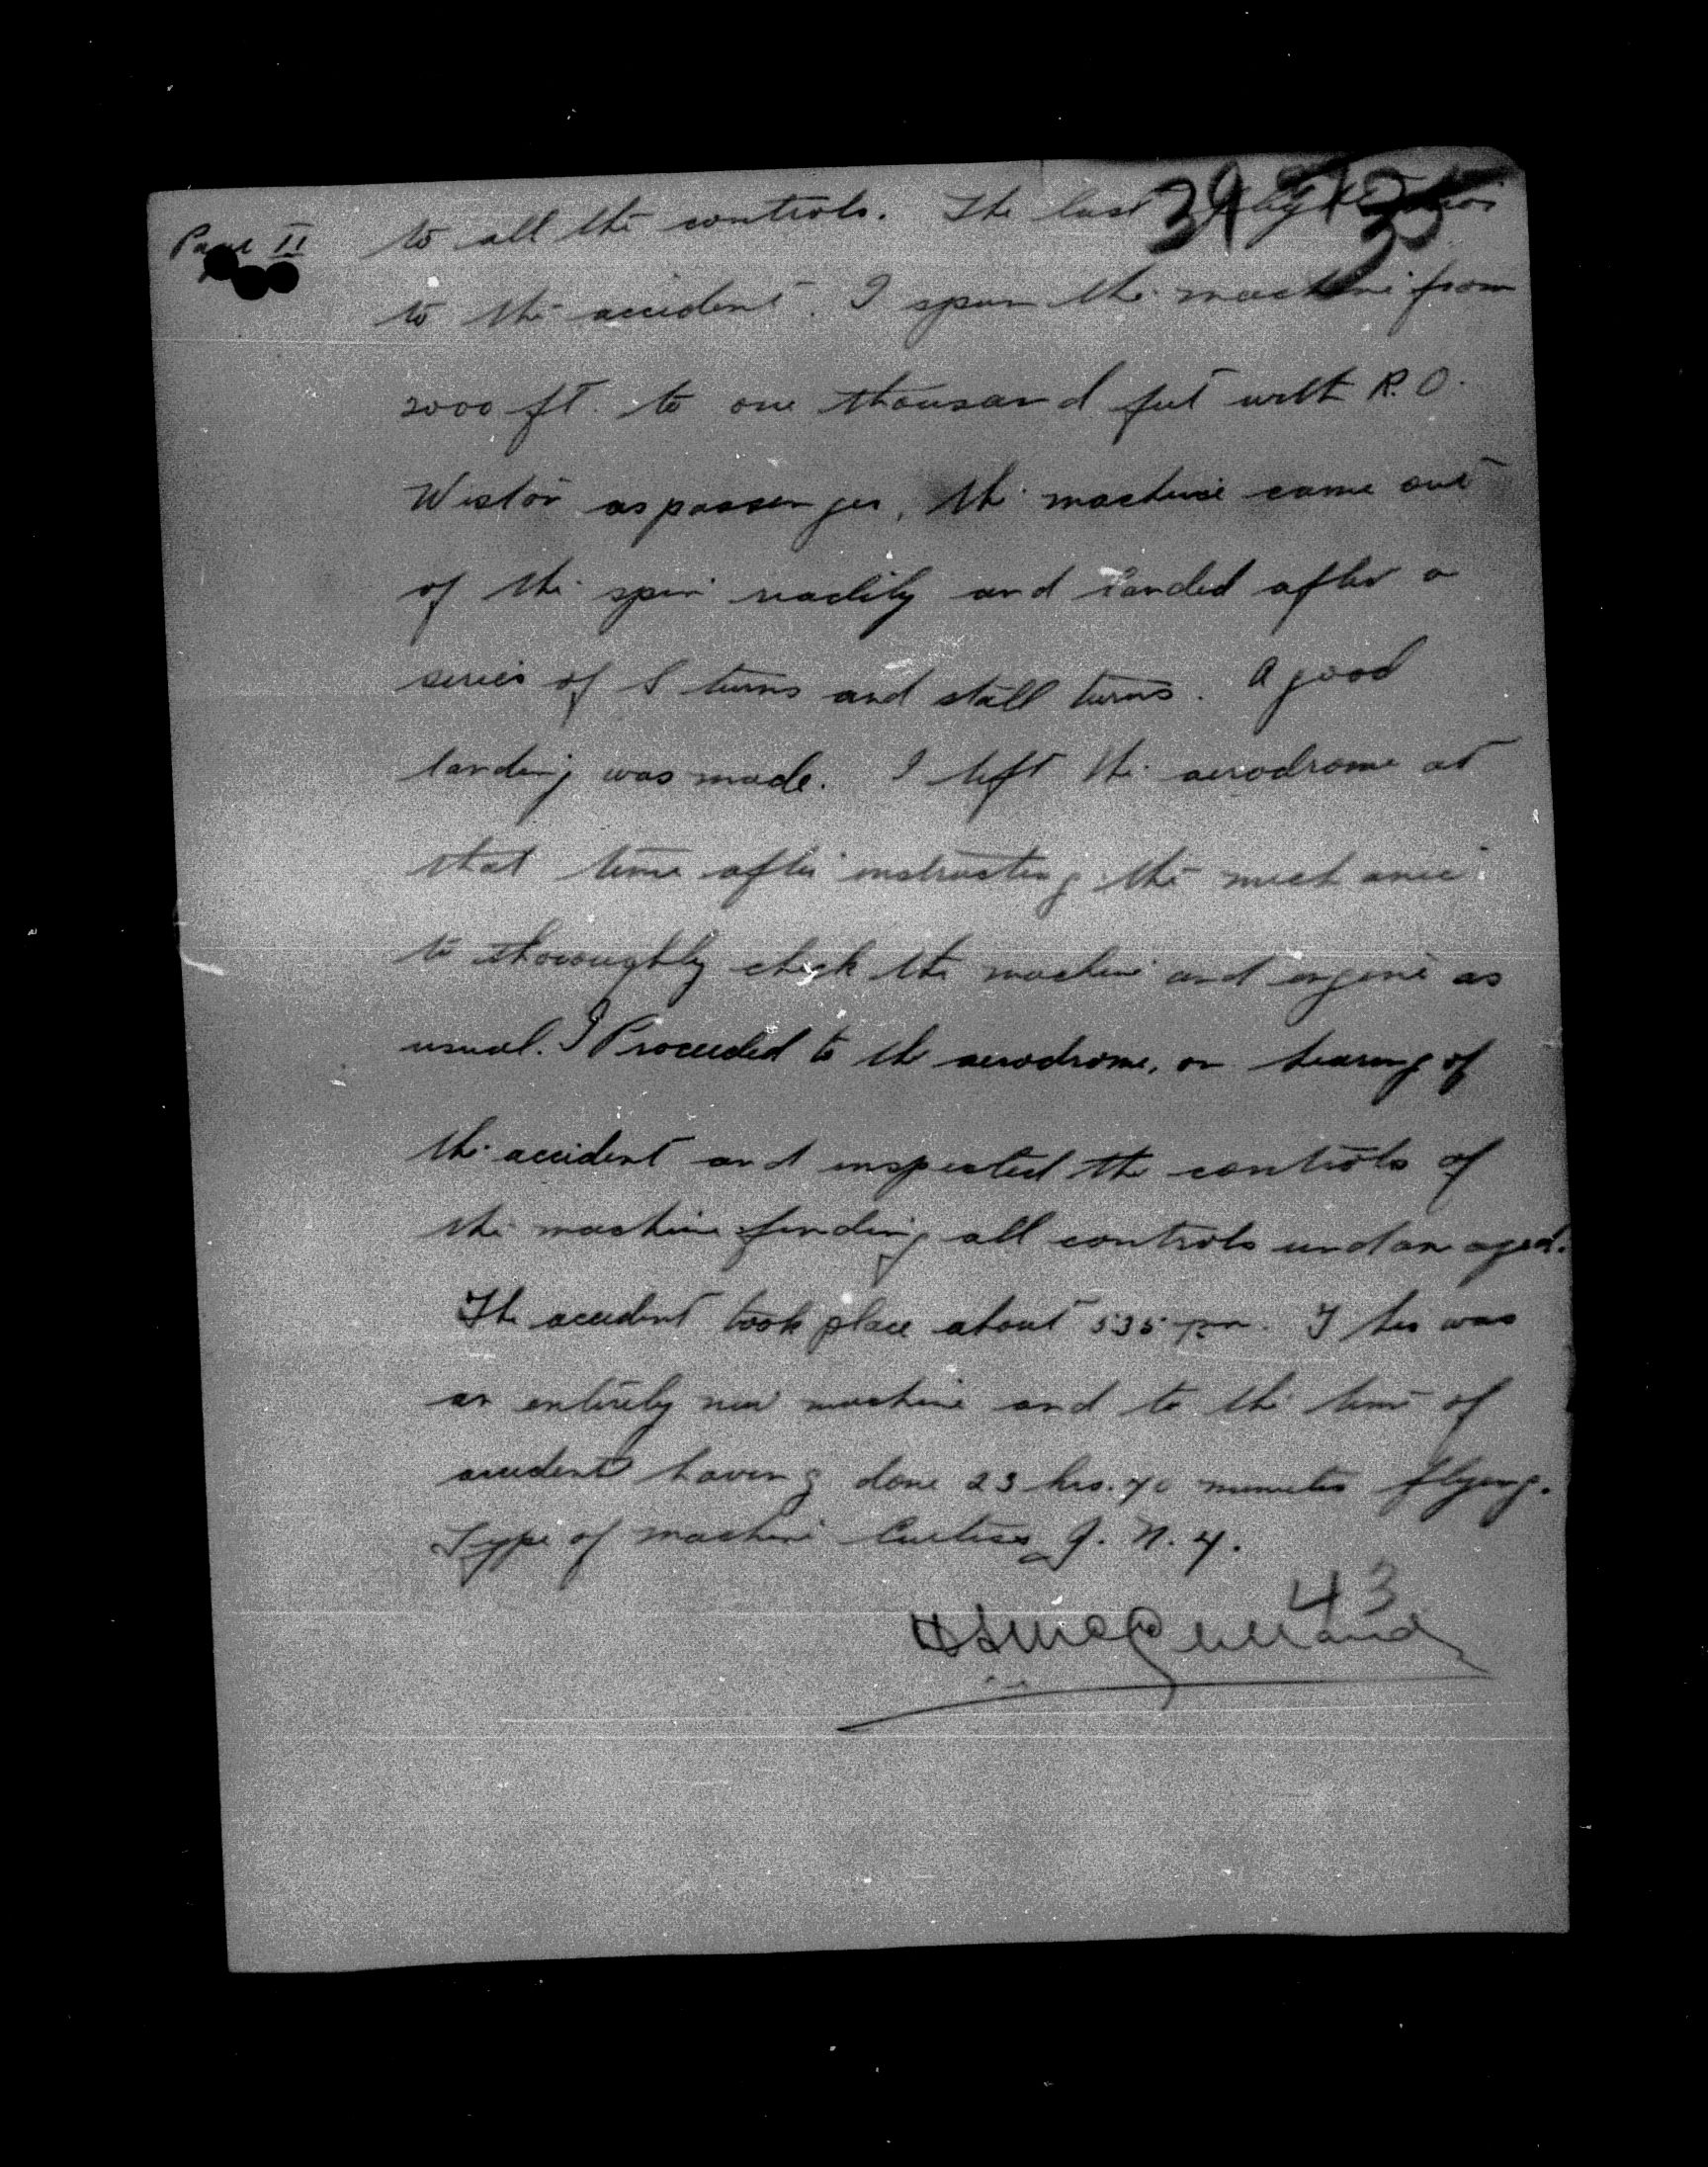 Page II
to all the controls. The last flight prior
to the accident. I spun the machine from
2000 ft. to one thousand feet with R.O.
Westor as passenger, the machine came out
of the spin readily and landed after a
series of S turns and stall turns. A good
landing was made. I left the aerodrome at
that time after instructing the mechanic
to thoroughly check the machine and engine as
usual. I Proceeded to the aerodrome, on hearing of
the accident and inspected the controls of
the machine finding all controls undamaged.
The accident took place about 535 pm. This was
an entirely new machine and to the time of
accident having done 23 hrs. 40 minutes flying.
Type of machine Curtiss J. N. 4.
43